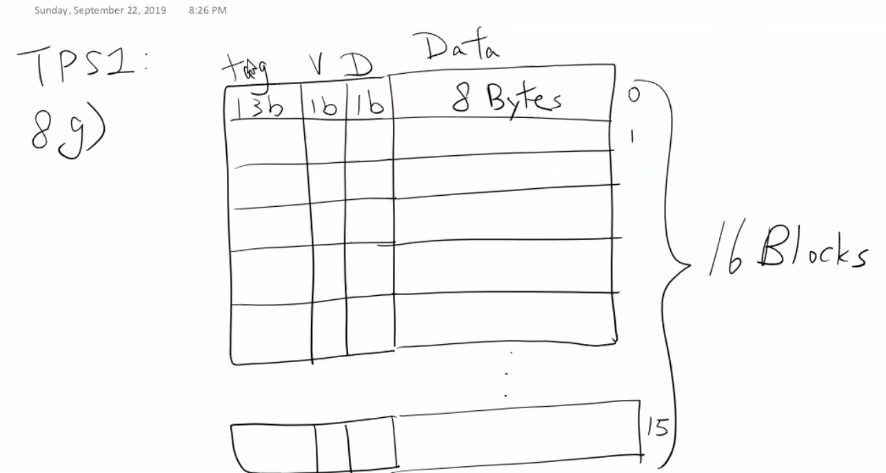 Sunday, September 22, 2019 8:26 PM
TPS1:
8g)
tag V D Data
13b 1b 1b 8 Bytes 0
1
16 Blocks
15